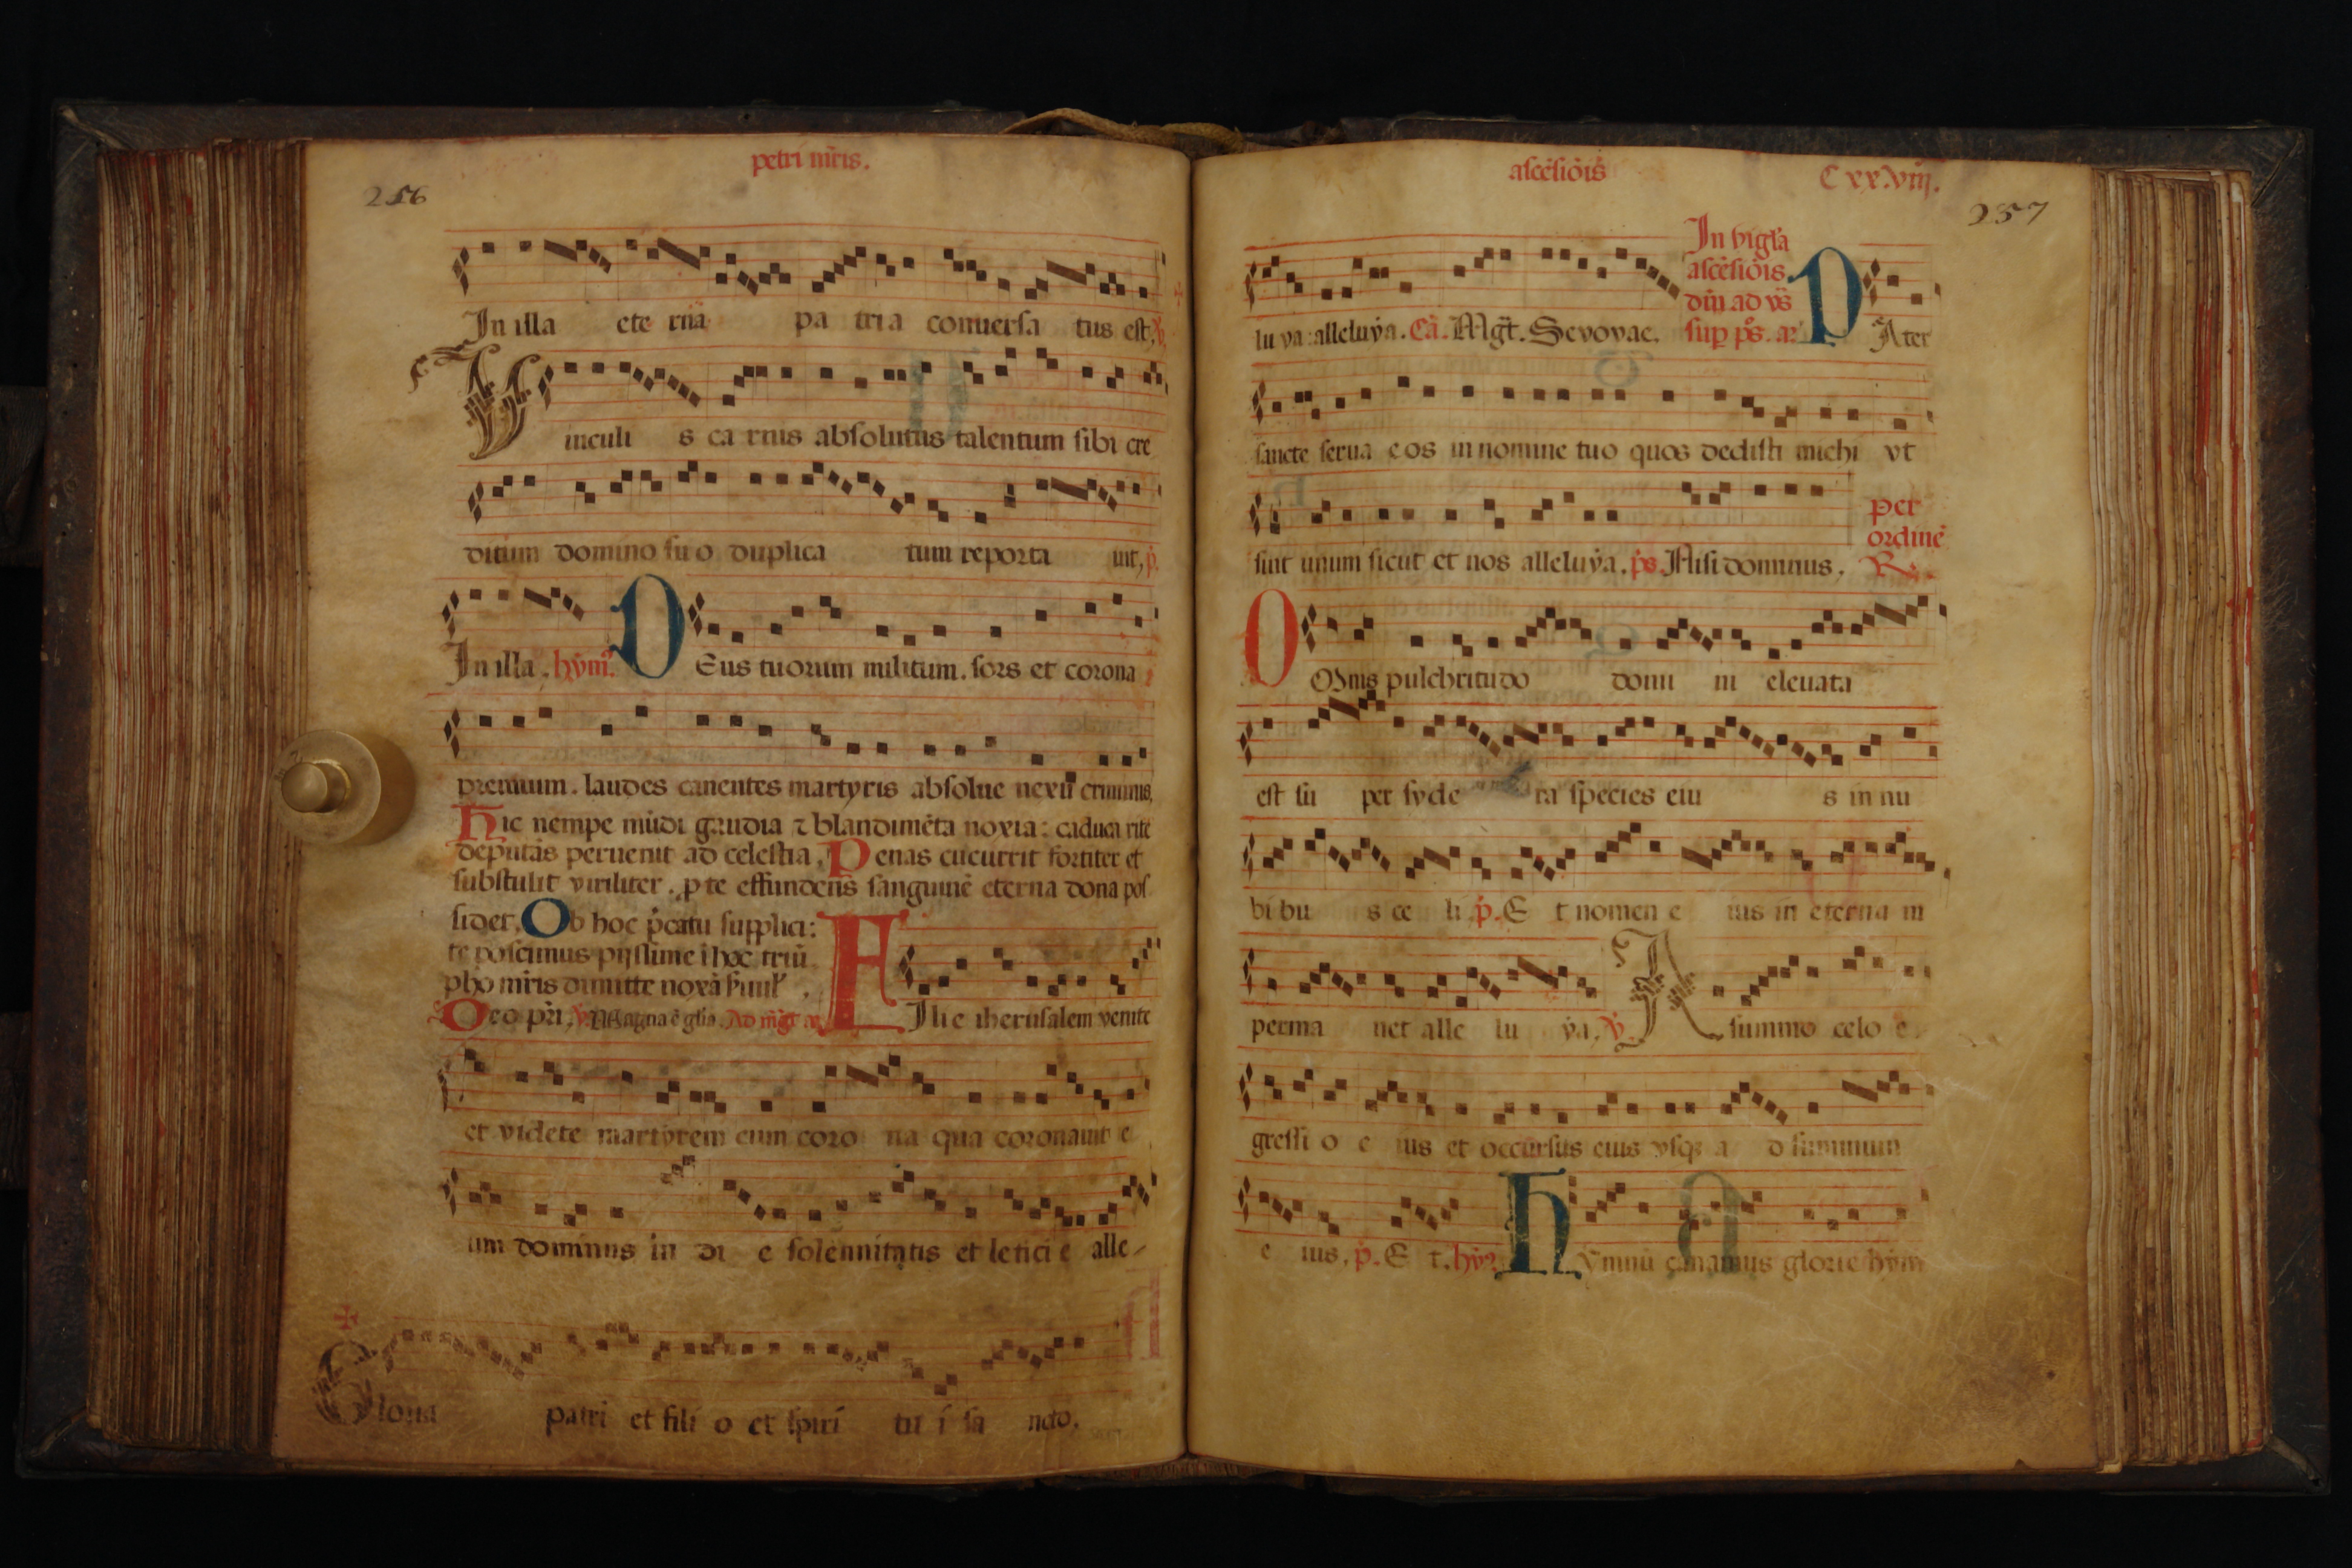 petri mr̃is.
256
In illa ete rnã pa tria conuersa tus est, v̇.
Vinculi s ca rnis absolutus talentum sibi cre
ditum domino su o duplica tum reporta uit, ṗ.
In illa. hẏm̃. DEus tuorum militum. sors et corona
premium. laudes canentes martyris absolue nexũ criminis,
Hic nempe mũdi gaudia ⁊ blandimẽta noxia: caduca rite
deputãs peruenit ad celestia. Penas cucurrit fortiter et
substulit viriliter. p te effundens sanguinẽ eterna dona pos
sidet. Ob hoc p̃catu supplici:
te poscimus pijssime ĩ hoc triũ
pho mr̃is dimitte noxã suul̃.
Deo pr̃i. v̇. Magna ẽ gl̃ia. Ad mg̃t añ.
FIlie iherusalem venite
et videte martyrem cum coro na qua coronauit e
um dominus in di e solennitatis et letici e alle-
Gloria patri et fili o et spiri tu i sa ncto.
ascẽsiõis
C xx.viij.
257
lu ya: alleluẏa. Cã. Mg̃t. Sevovae.
In vigl̃a
ascẽsiõis
dñi ad vs̃
sup ps̃. añ
PAter
sancte serua eos in nomine tuo quos dedisti michi vt
sint unum sicut et nos alleluẏa. ps̃. Nisi dominus.
per
ordinẽ
R̃.
OOmnis pulchritudo domi ni eleuata
est su per syde ra species eiu s in nu
bi bu s ce li ṗ. E t nomen e ius in eterna m
perma net alle lu ẏa. v̇. A summo celo e
gressi o e ius et occursus eius vsq; a d summum
e ius, ṗ. E t. hẏ̃. Hẏmnũ canamus glorie hẏm